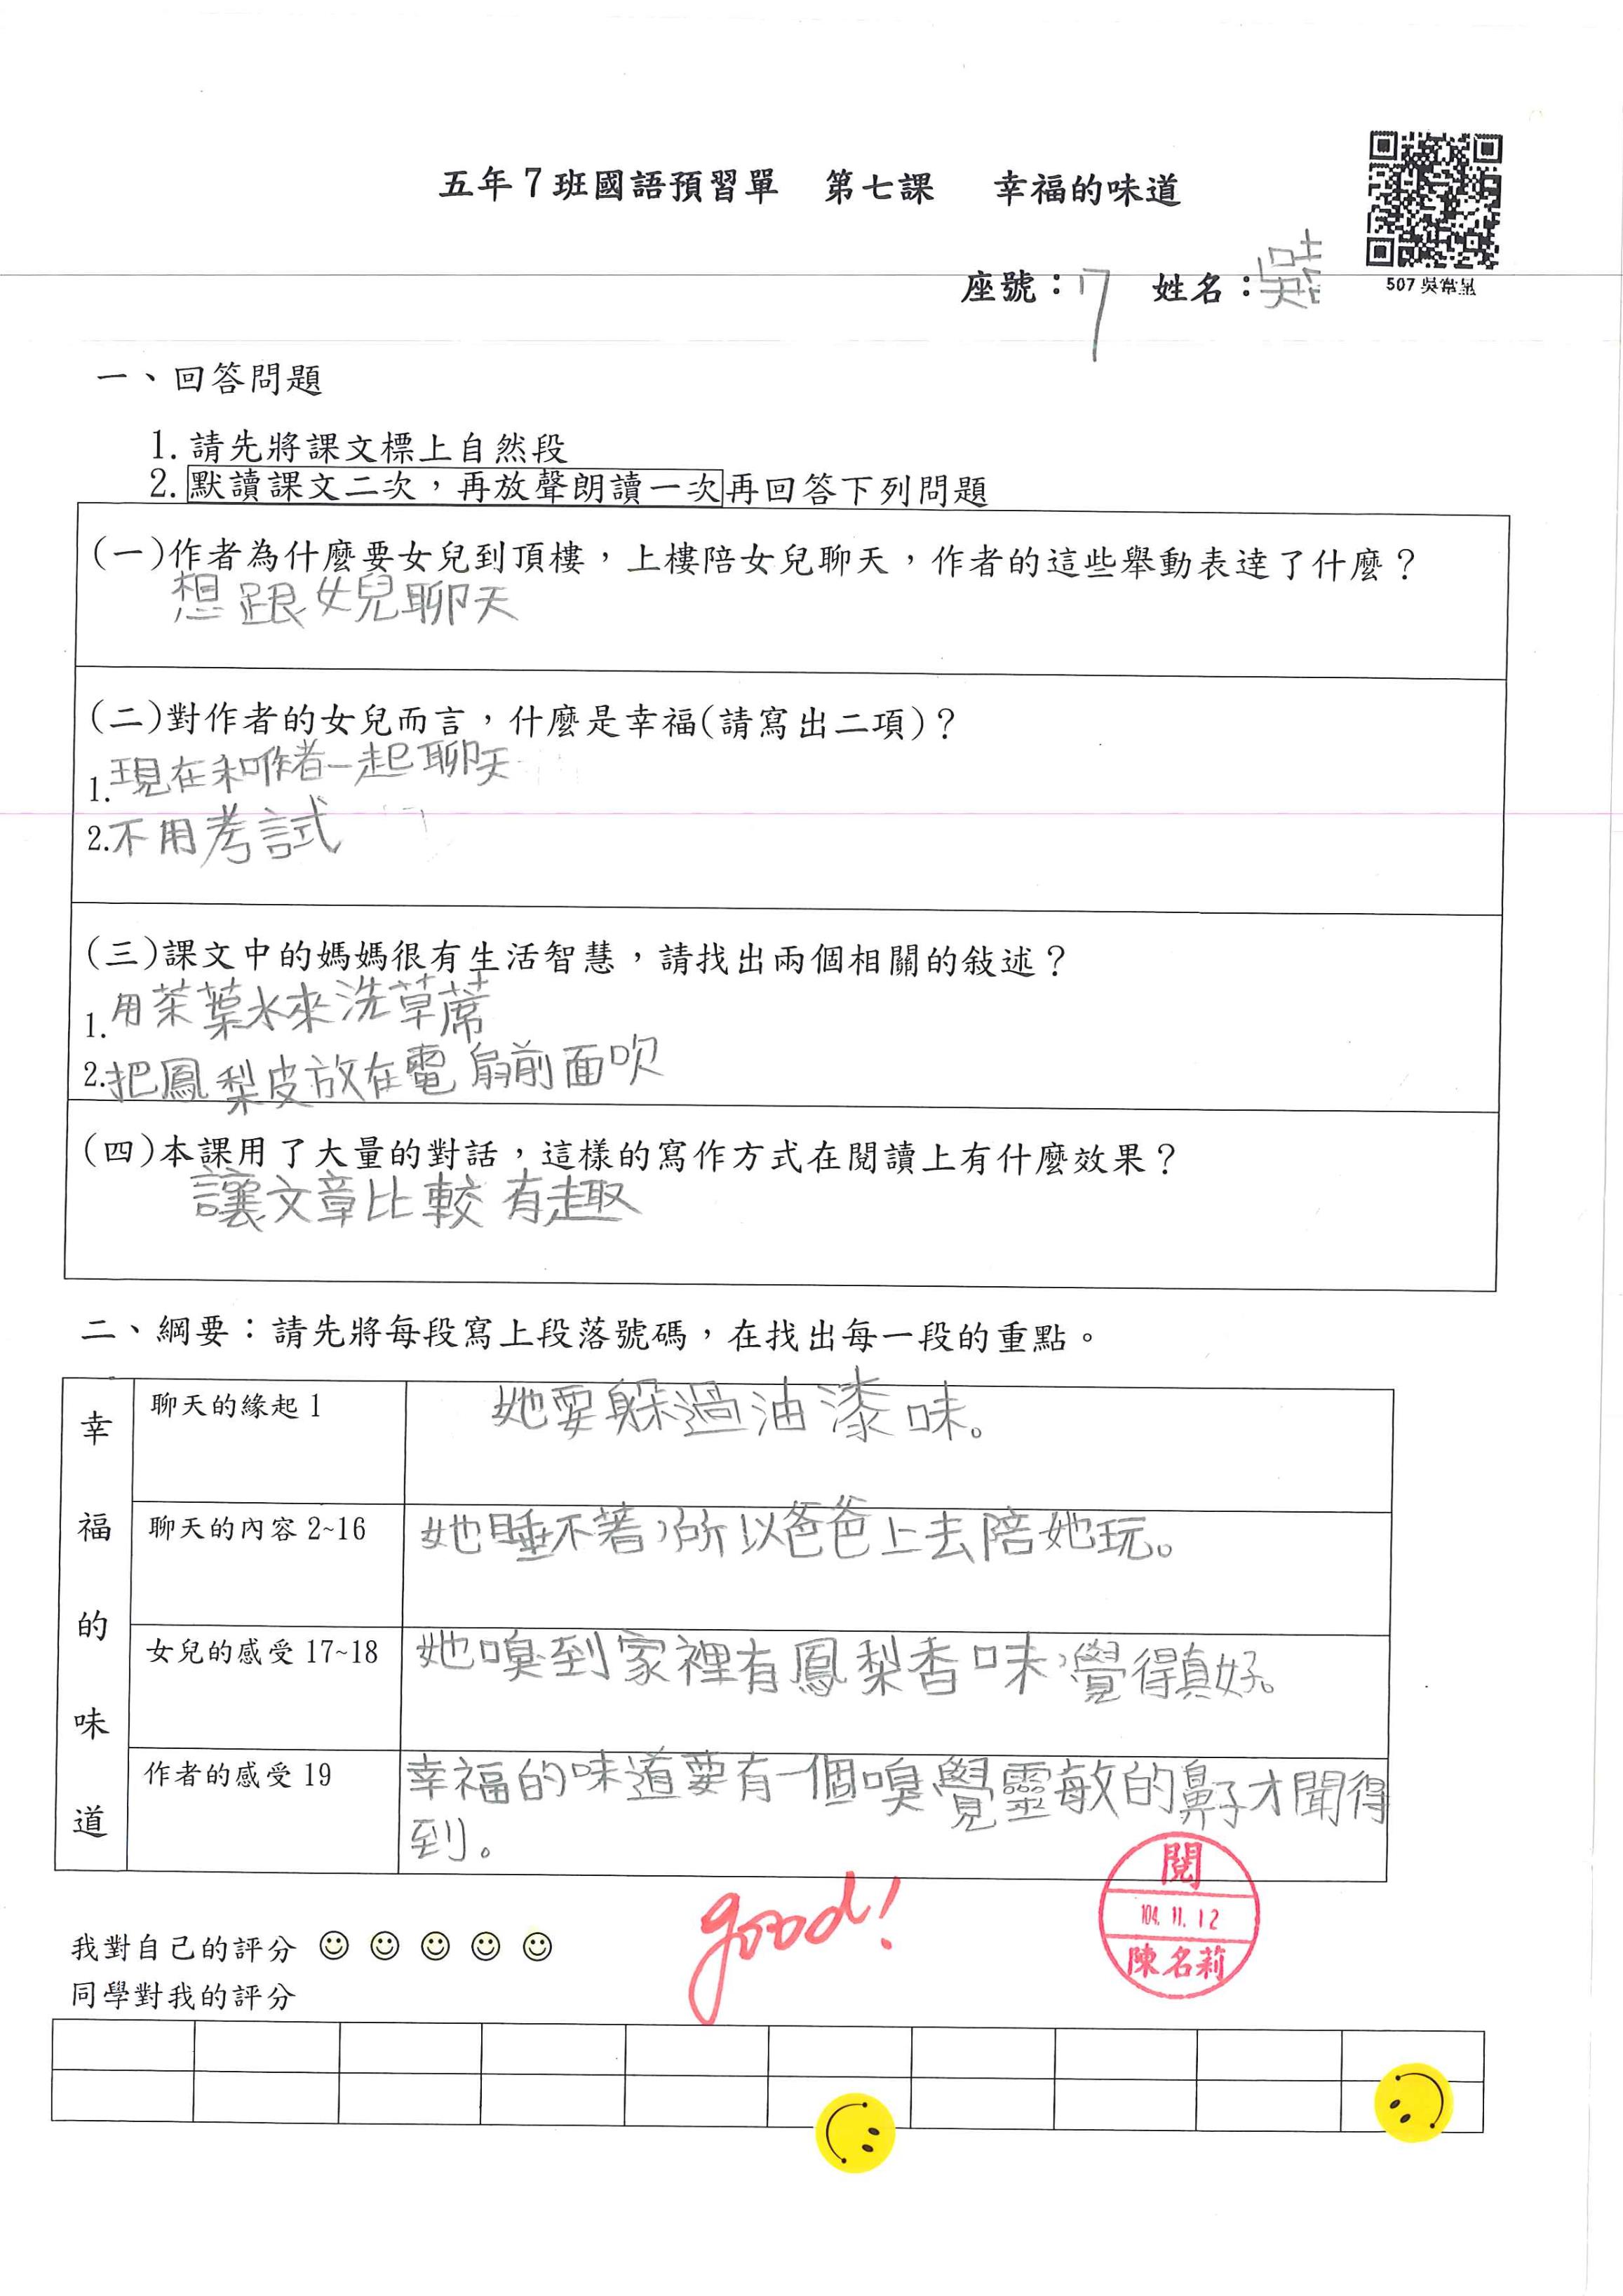 五年7班國語預習單 第七課 幸福的味道
座號：17 姓名：吳
507 吳常
一、回答問題
1. 請先將課文標上自然段
2. 默讀課文二次，再放聲朗讀一次再回答下列問題
(一)作者為什麼要女兒到頂樓，上樓陪女兒聊天，作者的這些舉動表達了什麼？
想跟女兒聊天
(二)對作者的女兒而言，什麼是幸福(請寫出二項)？
1.現在和作者一起聊天
2.不用考試
(三)課文中的媽媽很有生活智慧，請找出兩個相關的敍述？
1.用茶葉水來洗草蓆
2.把鳳梨皮放在電扇前面吹
(四)本課用了大量的對話，這樣的寫作方式在閱讀上有什麼效果？
讓文章比較有趣
二、綱要：請先將每段寫上段落號碼，在找出每一段的重點。
幸福的味道
聊天的緣起 1 她要躲過油漆味。
聊天的內容 2~16 她睡不著，所以爸爸上去陪她玩。
女兒的感受 17~18 她嗅到家裡有鳳梨香味，覺得真好。
作者的感受 19 幸福的味道要有一個嗅覺靈敏的鼻子才聞得
到。
good!
閱
104. 11. 12
陳名莉
我對自己的評分
同學對我的評分